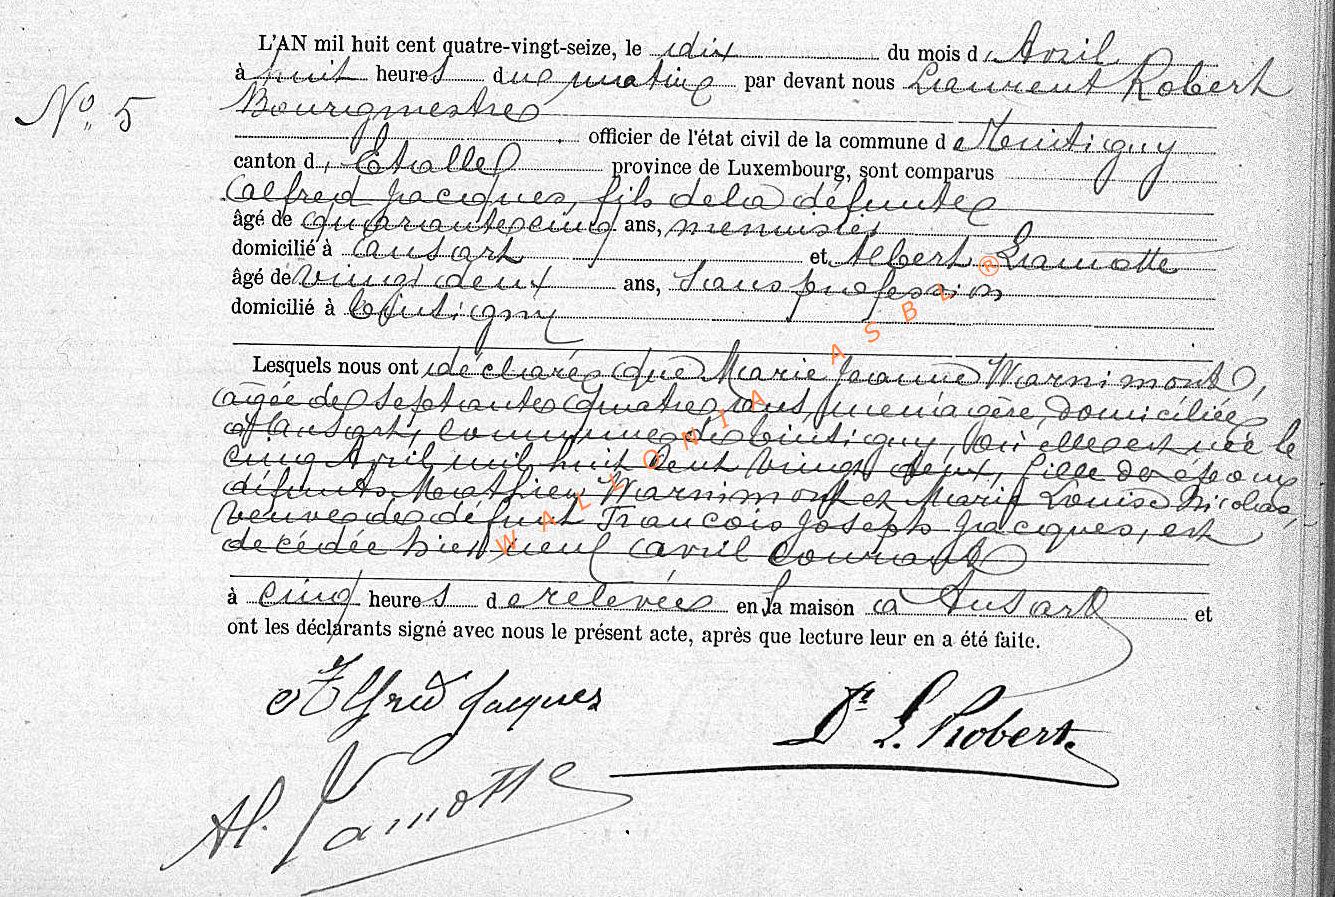 L'AN mil huit cent quatre-vingt-seize, le dix du mois d' Avril
à huit heures du matin par devant nous Laurent Robert
No. 5
Bourgmestre
officier de l'état civil de la commune de Tintigny
canton d' Etalle province de Luxembourg, sont comparus
Alfred Jacques, fils de la défunte
âgé de quarante cinq ans, menuisier
domicilié à Ansart et Albert Lamotte
âgé de vingt deux ans, sans profession
domicilié à Tintigny
Lesquels nous ont déclaré que Marie Jeanne Warnimont,
âgée de septante quatre ans, ménagère, domiciliée
à Ansart, commune de Tintigny, où elle est née le
cinq Avril mil huit cent vingt deux, fille des époux
défunts Mathieu Warnimont et Marie Louise Nicolas,
veuve de défunt François Joseph Jacques, est
décédée hier neuf avril courant
à cinq heures de relevée en la maison à Ansart et
ont les déclarants signé avec nous le présent acte, après que lecture leur en a été faite.
Alfred Jacques
Dr L. Robert.
Al. Lamotte
WALLONIA ASBL ®